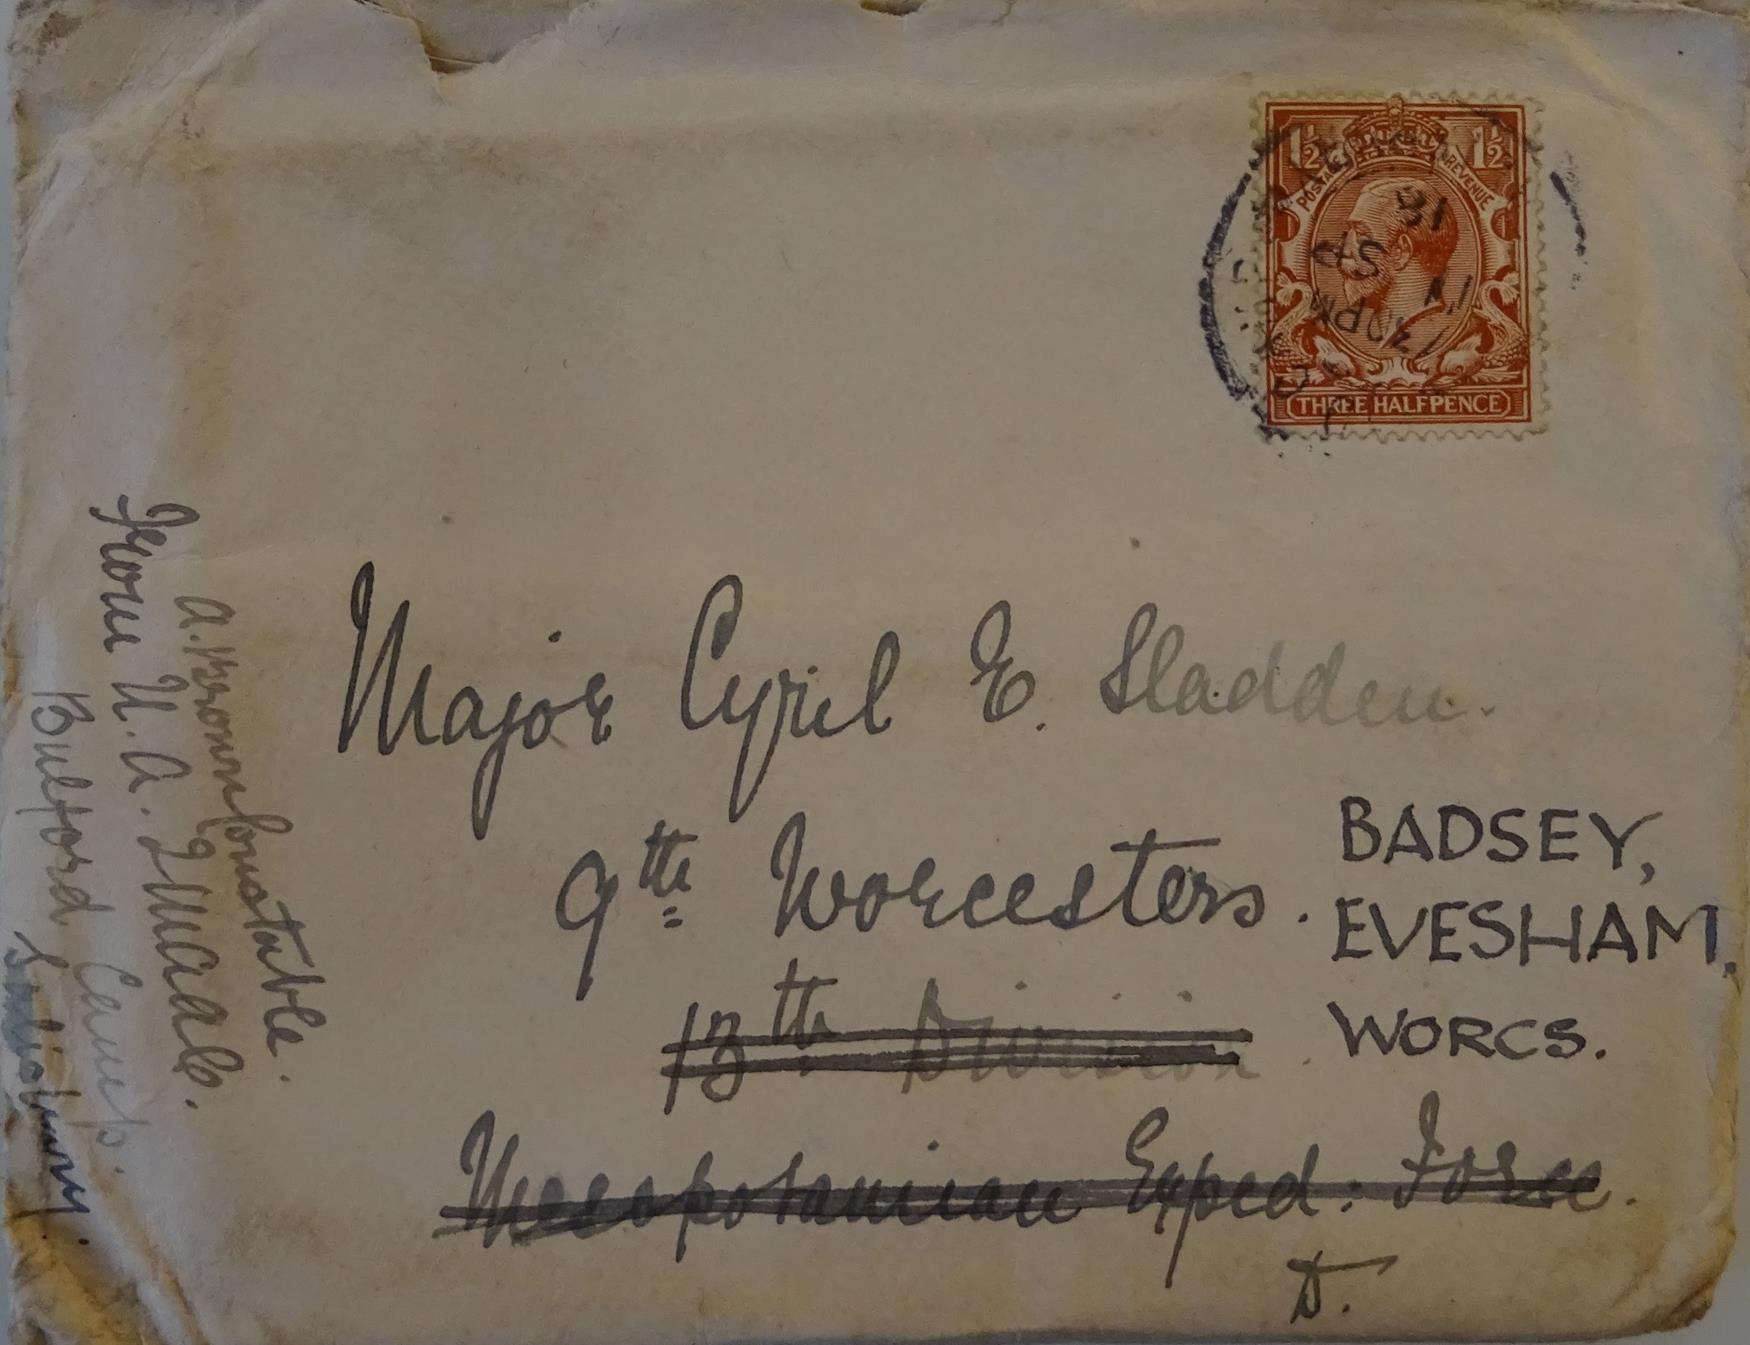 1½ 1½
POSTAGE REVENUE
18
SP
11
THREE HALFPENCE
Major Cyril E. Sladden.
9th Worcesters.
13th Division
Mesopotamian Exped: Force.
D.
BADSEY,
EVESHAM,
WORCS.
A. Brown Constable.
From N. A.
Bulford Camp.
Salisbury.